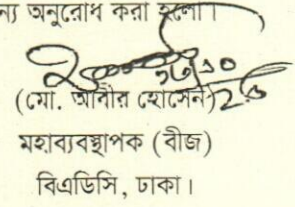 ন্য অনুরোধ করা হলো।
(মো. আবীর হোসেন)
মহাব্যবস্থাপক (বীজ)
বিএডিসি, ঢাকা।